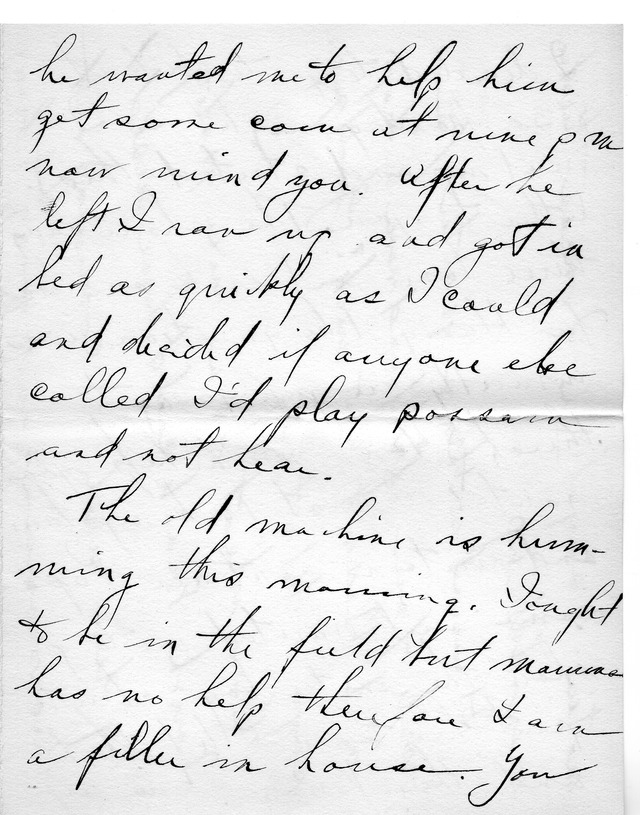 he wanted me to help him
get some corn at nine p m
now mind you. After he
left I ran up and got in
bed as quickly as I could
and decided if anyone else
called I'd play possum
and not hear.
The old machine is hum-
ming this morning. I ought
to be in the field but mamma
has no help therefore I am
a filler in house. You